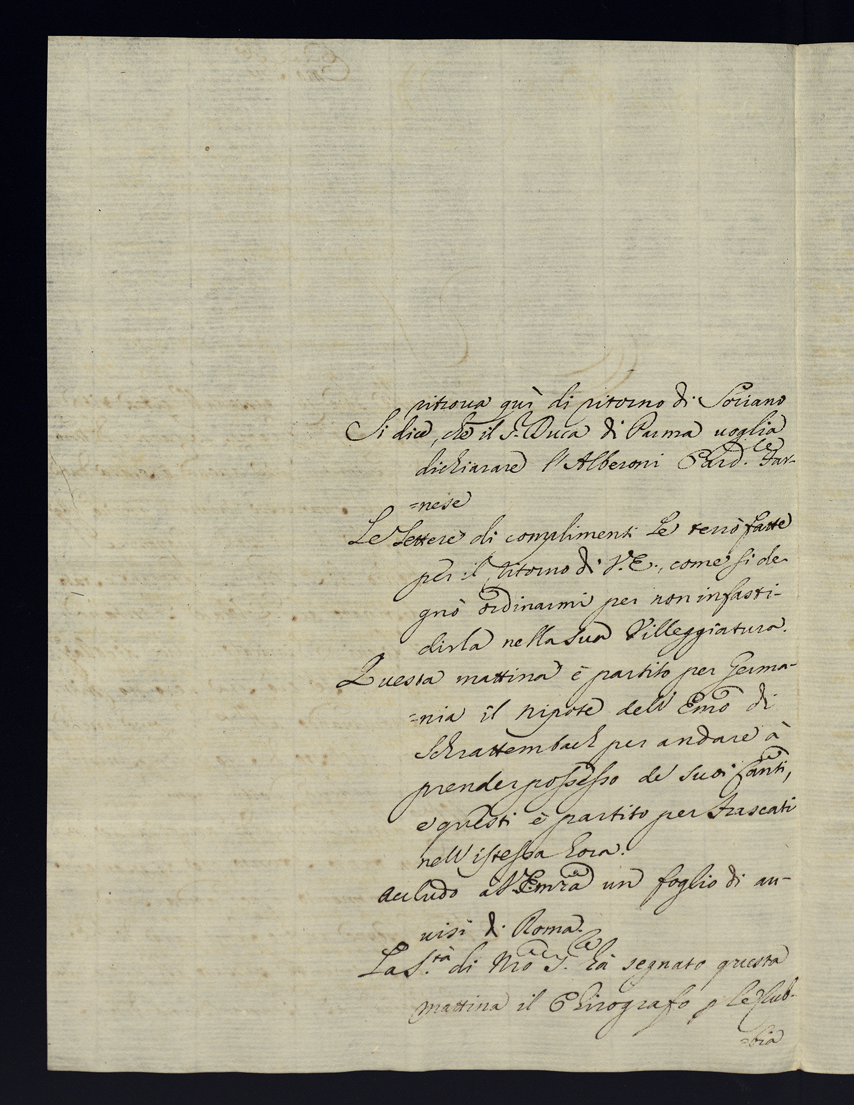 ritroua quì di ritorno di Soriano
Si dice, che il S.r Duca di Parma uoglia
dichiarare l'Alberoni Card.le Far-
=nese
Le Lettere di complimenti Le terrò fatte
per il ritorno di V.E., come si de-
gnò ordinarmi per non infasti-
dirla nella sua Villeggiatura.
Questa mattina è partito per Germa-
=nia il nipote dell'Emō di
Schrattembach per andare à
prender possesso de suoi
e questi è partito per Frascati
nell'istessa hora.
Accludo all' Emzā un foglio di au-
uisi di Roma.
La S.tà di Nrō S.re hà segnato questa
mattina il Chirografo p le Sub-
=bia